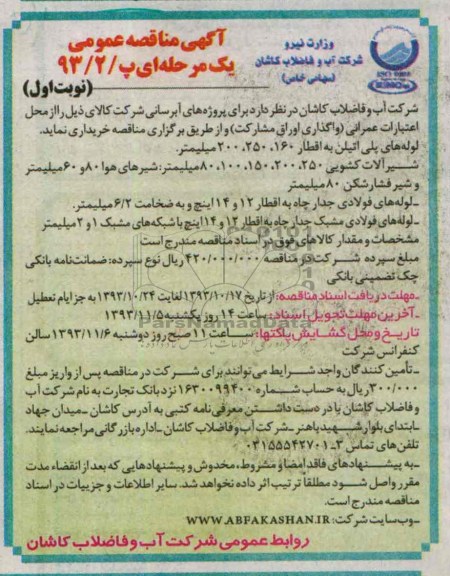 آگهی مناقصه عمومی
یک مرحله‌ای پ/۹۳/۲
(نوبت اول)
وزارت نیرو
شرکت آب و فاضلاب کاشان
(سهامی خاص)
شرکت آب و فاضلاب کاشان در نظر دارد برای پروژه‌های آبرسانی شرکت کالای ذیل را از محل
اعتبارات عمرانی (واگذاری اوراق مشارکت) و از طریق برگزاری مناقصه خریداری نماید.
لوله‌های پلی اتیلن به اقطار ۱۶۰، ۲۵۰، ۲۰۰ میلیمتر.
شیرآلات کشویی ۲۵۰، ۲۰۰، ۱۵۰، ۱۰۰، ۸۰ میلیمتر: شیرهای هوا ۸۰ و ۶۰ میلیمتر
و شیر فشارشکن ۸۰ میلیمتر
ـ لوله‌های فولادی جدار چاه به اقطار ۱۲ و ۱۴ اینچ و به ضخامت ۶/۲ میلیمتر.
ـ لوله‌های فولادی مشبک جدار چاه به اقطار ۱۲ و ۱۴ اینچ با شبکه‌های مشبک ۱ و ۲ میلیمتر
مشخصات و مقدار کالاهای فوق در اسناد مناقصه مندرج است
مبلغ سپرده شرکت در مناقصه ۴۲۰/۰۰۰/۰۰۰ ریال نوع سپرده: ضمانت‌نامه بانکی
چک تضمینی بانکی
ـ مهلت دریافت اسناد مناقصه: از تاریخ ۱۳۹۳/۱۰/۱۷ لغایت ۱۳۹۳/۱۰/۲۴ به جز ایام تعطیل
ـ آخرین مهلت تحویل اسناد: ساعت ۱۴ روز یکشنبه ۱۳۹۳/۱۱/۵
تاریخ و محل گشایش پاکتها: ساعت ۱۱ صبح روز دوشنبه ۱۳۹۳/۱۱/۶ سالن
کنفرانس شرکت
ـ تأمین کنندگان واجد شرایط می‌توانند برای شرکت در مناقصه پس از واریز مبلغ
۳۰۰/۰۰۰ ریال به حساب شماره ۱۶۳۰۰۹۹۴۰۰ نزد بانک تجارت به نام شرکت آب
و فاضلاب کاشان با در دست داشتن معرفی‌نامه کتبی به آدرس کاشان ـ میدان جهاد
ـ ابتدای بلوار شهید باهنر ـ شرکت آب و فاضلاب کاشان ـ اداره بازرگانی مراجعه نمایند.
تلفن‌های تماس ۳ـ ۰۳۱۵۵۵۴۲۷۰۱
ـ به پیشنهادهای فاقد امضا و مشروط، مخدوش و پیشنهادهایی که بعد از انقضاء مدت
مقرر واصل شود مطلقاً ترتیب اثر داده نخواهد شد. سایر اطلاعات و جزییات در اسناد
مناقصه مندرج است.
ـ وب‌سایت شرکت: WWW.ABFAKASHAN.IR
روابط عمومی شرکت آب و فاضلاب کاشان